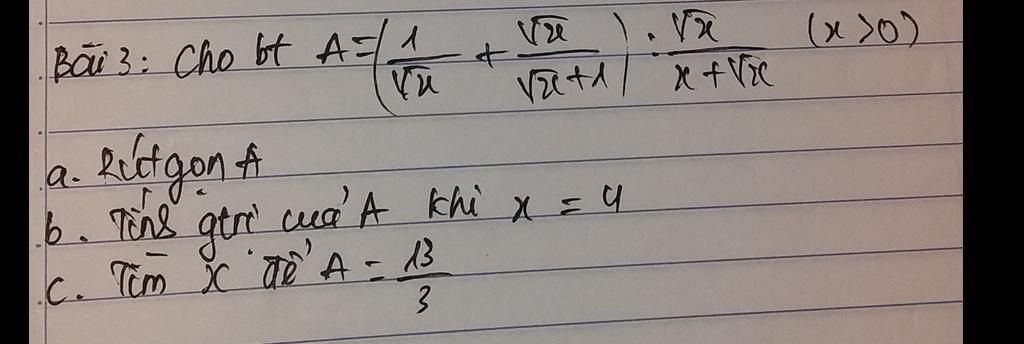 Bài 3: Cho bt A = (1/√x + √x/(√x+1)) : √x/(x+√x) (x>0)
a. Rút gọn A
b. Tính gtrị của A khi x = 4
c. Tìm x để A = 13/3